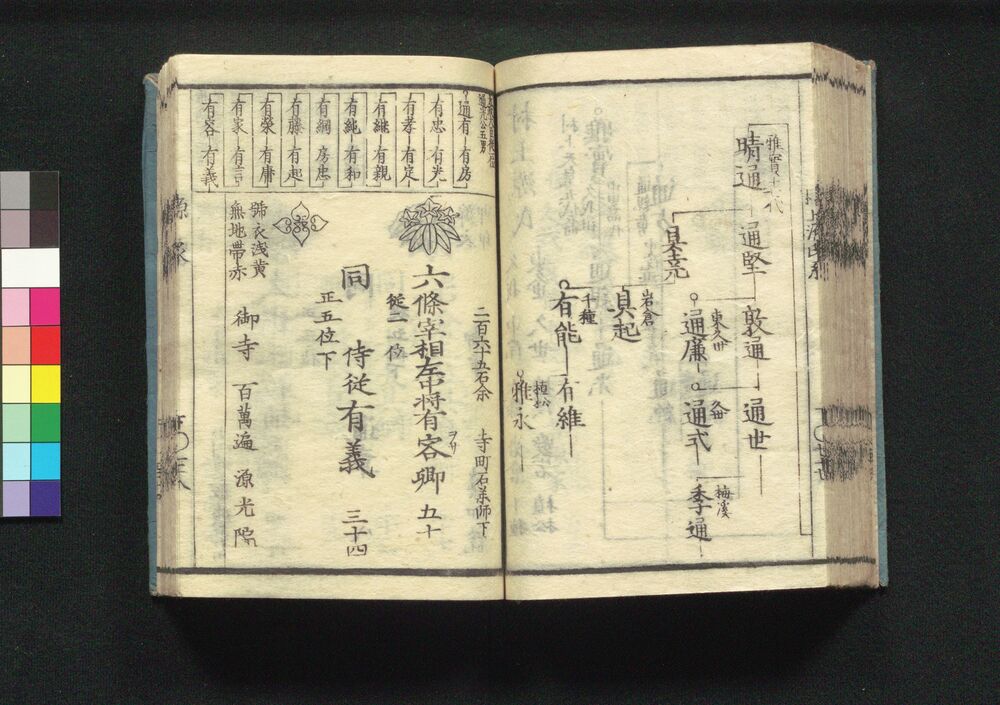 雅實十代
晴通
通堅
敦通
通世
具堯
岩倉
具起
東久世
通廉
通式
梅溪
季通
千種
有能
有維
植松
雅永
通光公五男
通有
有房
有忠
有光
有孝
有定
有継
有親
有純
有和
有綱
房忠
有藤
有起
有榮
有庸
有家
有言
有容
有義
二百六十五石余
寺町石薬師下
六條宰相左中将有容卿
五十
従二位
同
侍従有義
三十四
正五位下
號衣浅黄
無地帯赤
御寺
百萬遍
源光院